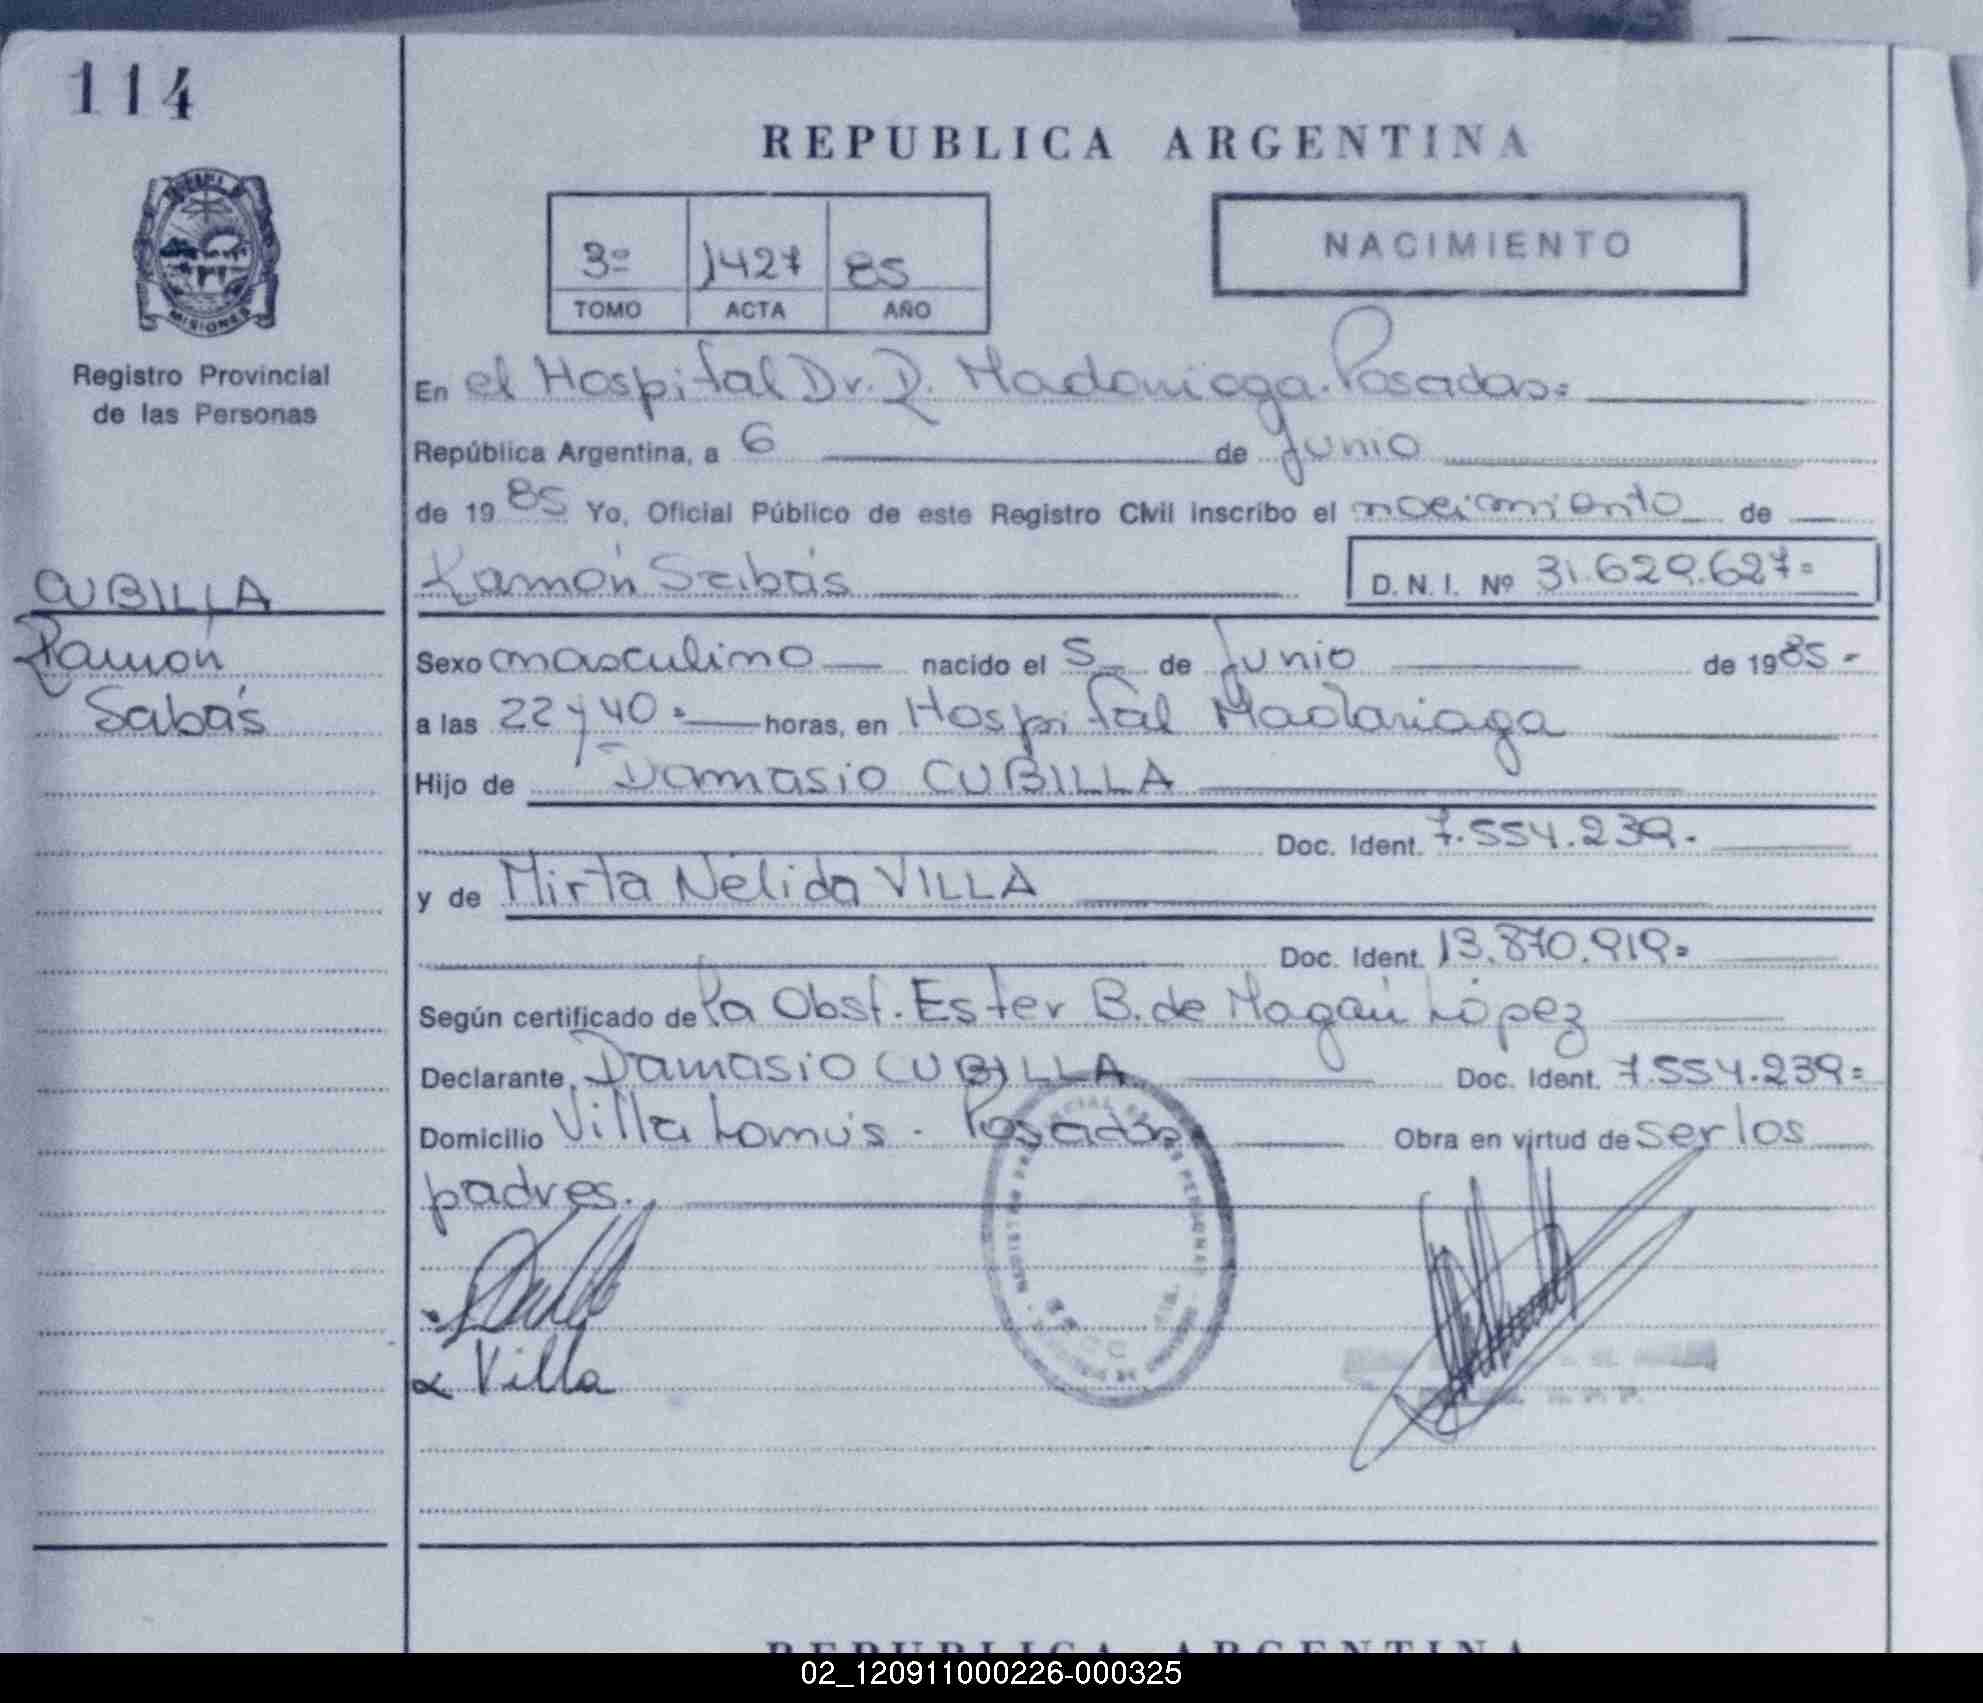 114
REPUBLICA ARGENTINA
3º 1427 85
TOMO ACTA AÑO
NACIMIENTO
MISIONES
Registro Provincial
de las Personas
En el Hospital Dr. R. Madariaga. Posadas=
República Argentina, a 6 de Junio
de 1985 Yo, Oficial Público de este Registro Civil inscribo el nacimiento de
CUBILLA
Ramón Sabás
D.N.I. Nº 31.629.627=
Ramón
Sabás
Sexo masculino nacido el 5 de Junio de 1985-
a las 22 y 40= horas, en Hospital Madariaga
Hijo de Damasio CUBILLA
Doc. Ident. 7.554.239.-
y de Mirta Nélida VILLA
Doc. Ident. 13.870.919=
Según certificado de la Obst. Ester B. de Magan López
Declarante, Damasio CUBILLA Doc. Ident. 7.554.239=
Domicilio Villa Lanús - Posadas Obra en virtud de ser los
padres.
Villa
REPUBLICA ARGENTINA
02_120911000226-000325